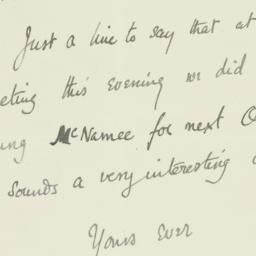 Just a line to say that at
eting this evening we did
ung McNamee for next O
sounds a very interesting
Yours Ever